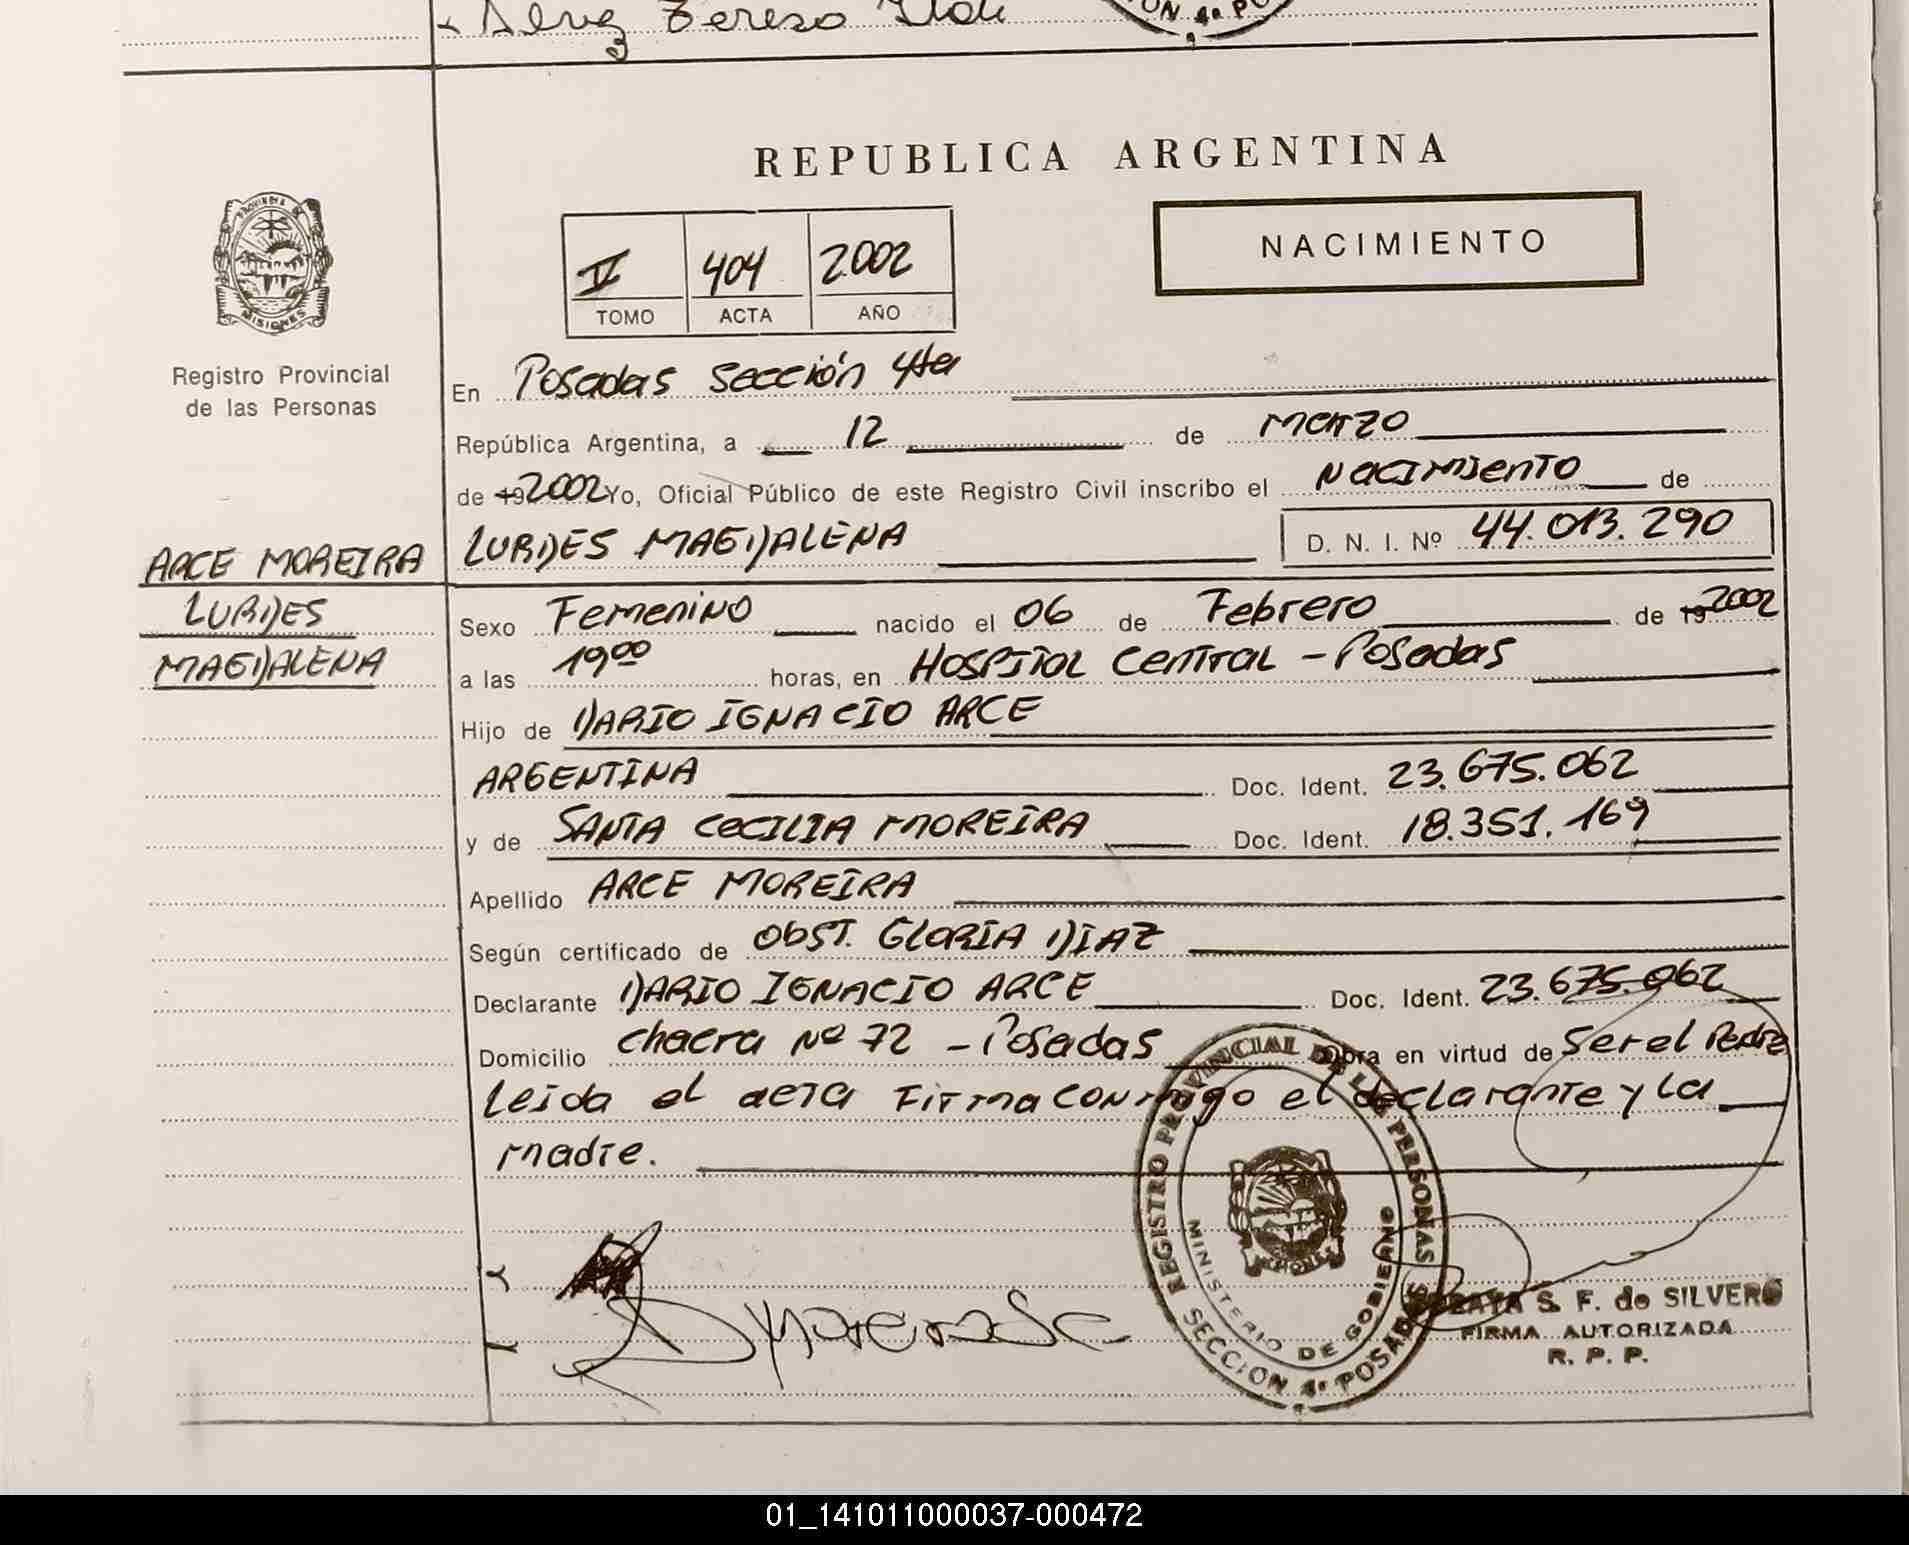 REPUBLICA ARGENTINA
PROVINCIA DE
MISIONES
Registro Provincial
de las Personas
V 404 2002
TOMO ACTA AÑO
NACIMIENTO
En Posadas Sección 4ta
República Argentina, a 12 de Marzo
de 19 2002 Yo, Oficial Público de este Registro Civil inscribo el Nacimiento de
LURDES MAGDALENA D. N. I. Nº 44.013.290
ARCE MOREIRA
LURDES
MAGDALENA
Sexo Femenino nacido el 06 de Febrero de 19 2002
a las 19 00 horas, en Hospital Central - Posadas
Hijo de DARIO IGNACIO ARCE
ARGENTINA Doc. Ident. 23.675.062
y de SANTA CECILIA MOREIRA Doc. Ident. 18.351.169
Apellido ARCE MOREIRA
Según certificado de Obst. GLORIA DIAZ
Declarante DARIO IGNACIO ARCE Doc. Ident. 23.675.062
Domicilio chacra Nº 72 - Posadas Obra en virtud de Ser el Padre
Leída el acta Firma conmigo el declarante y la
madre.
REGISTRO PROVINCIAL DE LAS PERSONAS
MINISTERIO DE GOBIERNO
SECCION 4ª POSADAS
S. F. de SILVERO
FIRMA AUTORIZADA
R. P. P.
01_141011000037-000472